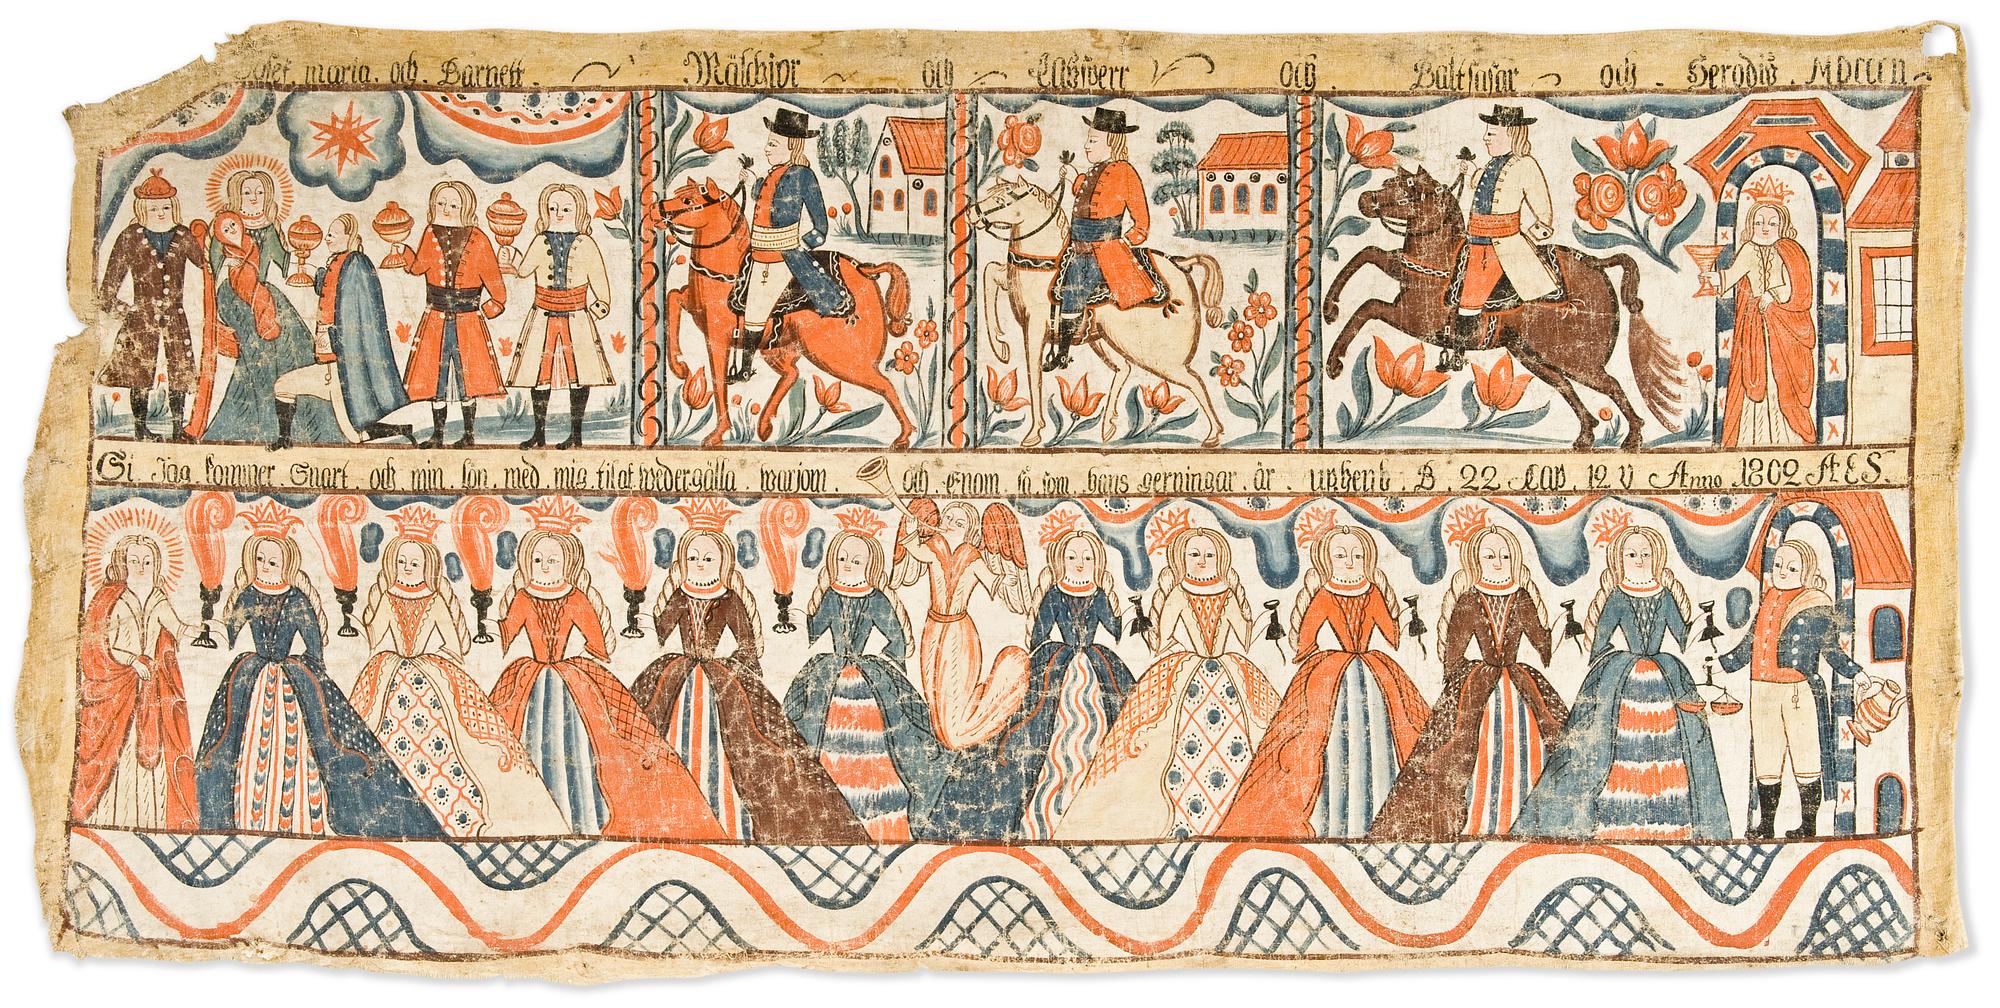 Josef. maria. och. Barnett. Mälchior och Casperr och. Baltsasar och. Herodis. MDCCCII
Si. Jag kommer Snart. och min lön. med mig. til at wedergälla. warjom. och enom. så som hans gerningar. är. uphenb. B. 22. Cap. 12 V Anno. 1802 A E S.